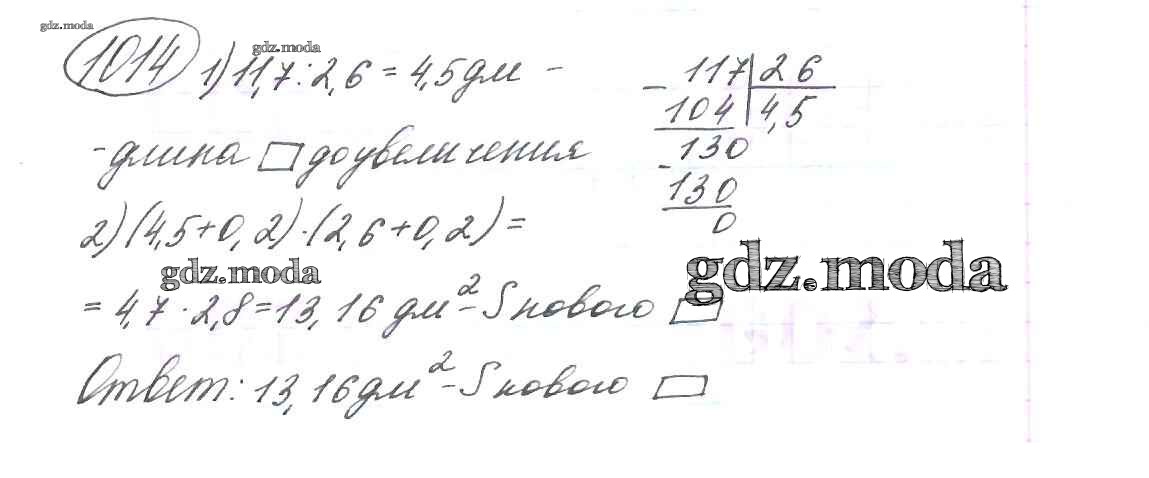 gdz.moda
1014 1) 11,7 : 2,6 = 4,5 дм -
gdz.moda
- длина ▭ до увеличения
2) (4,5 + 0,2) · (2,6 + 0,2) =
gdz.moda
= 4,7 · 2,8 = 13,16 дм² - S нового ▭
Ответ: 13,16 дм² - S нового ▭
- 117 | 26
104 | 4,5
- 130
130
0
gdz.moda